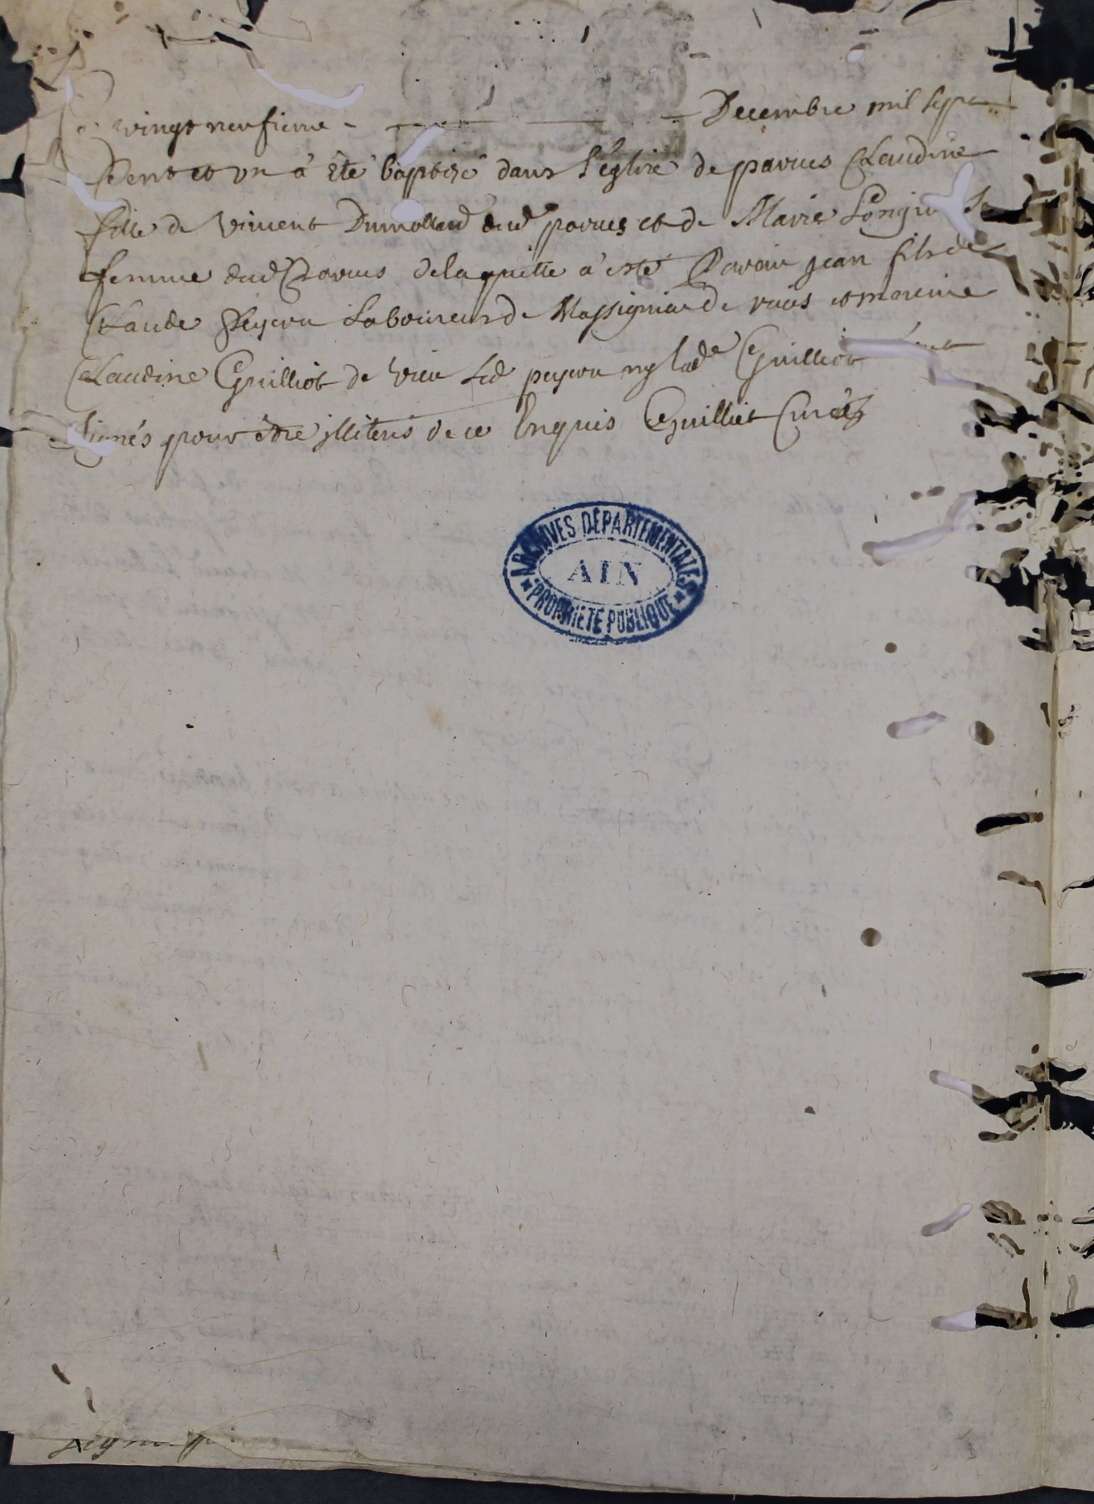 vingt neufieme - Decembre mil sept
Cent et un a été baptisé dans l'église de parves Claudine
fille de vincent Dumollard dud parves et de Marie
femme dud parves de laquelle a esté Parain Jean fils de
Claude peyson Laboureur de Massignieu de rives et mareine
Claudine Guilliot de led peyson ny lade Guilliot
signés pour être illiterés de ce Enquis Guilliet Curé
ARCHIVES DÉPARTEMENTALES
AIN
PROPRIÉTÉ PUBLIQUE